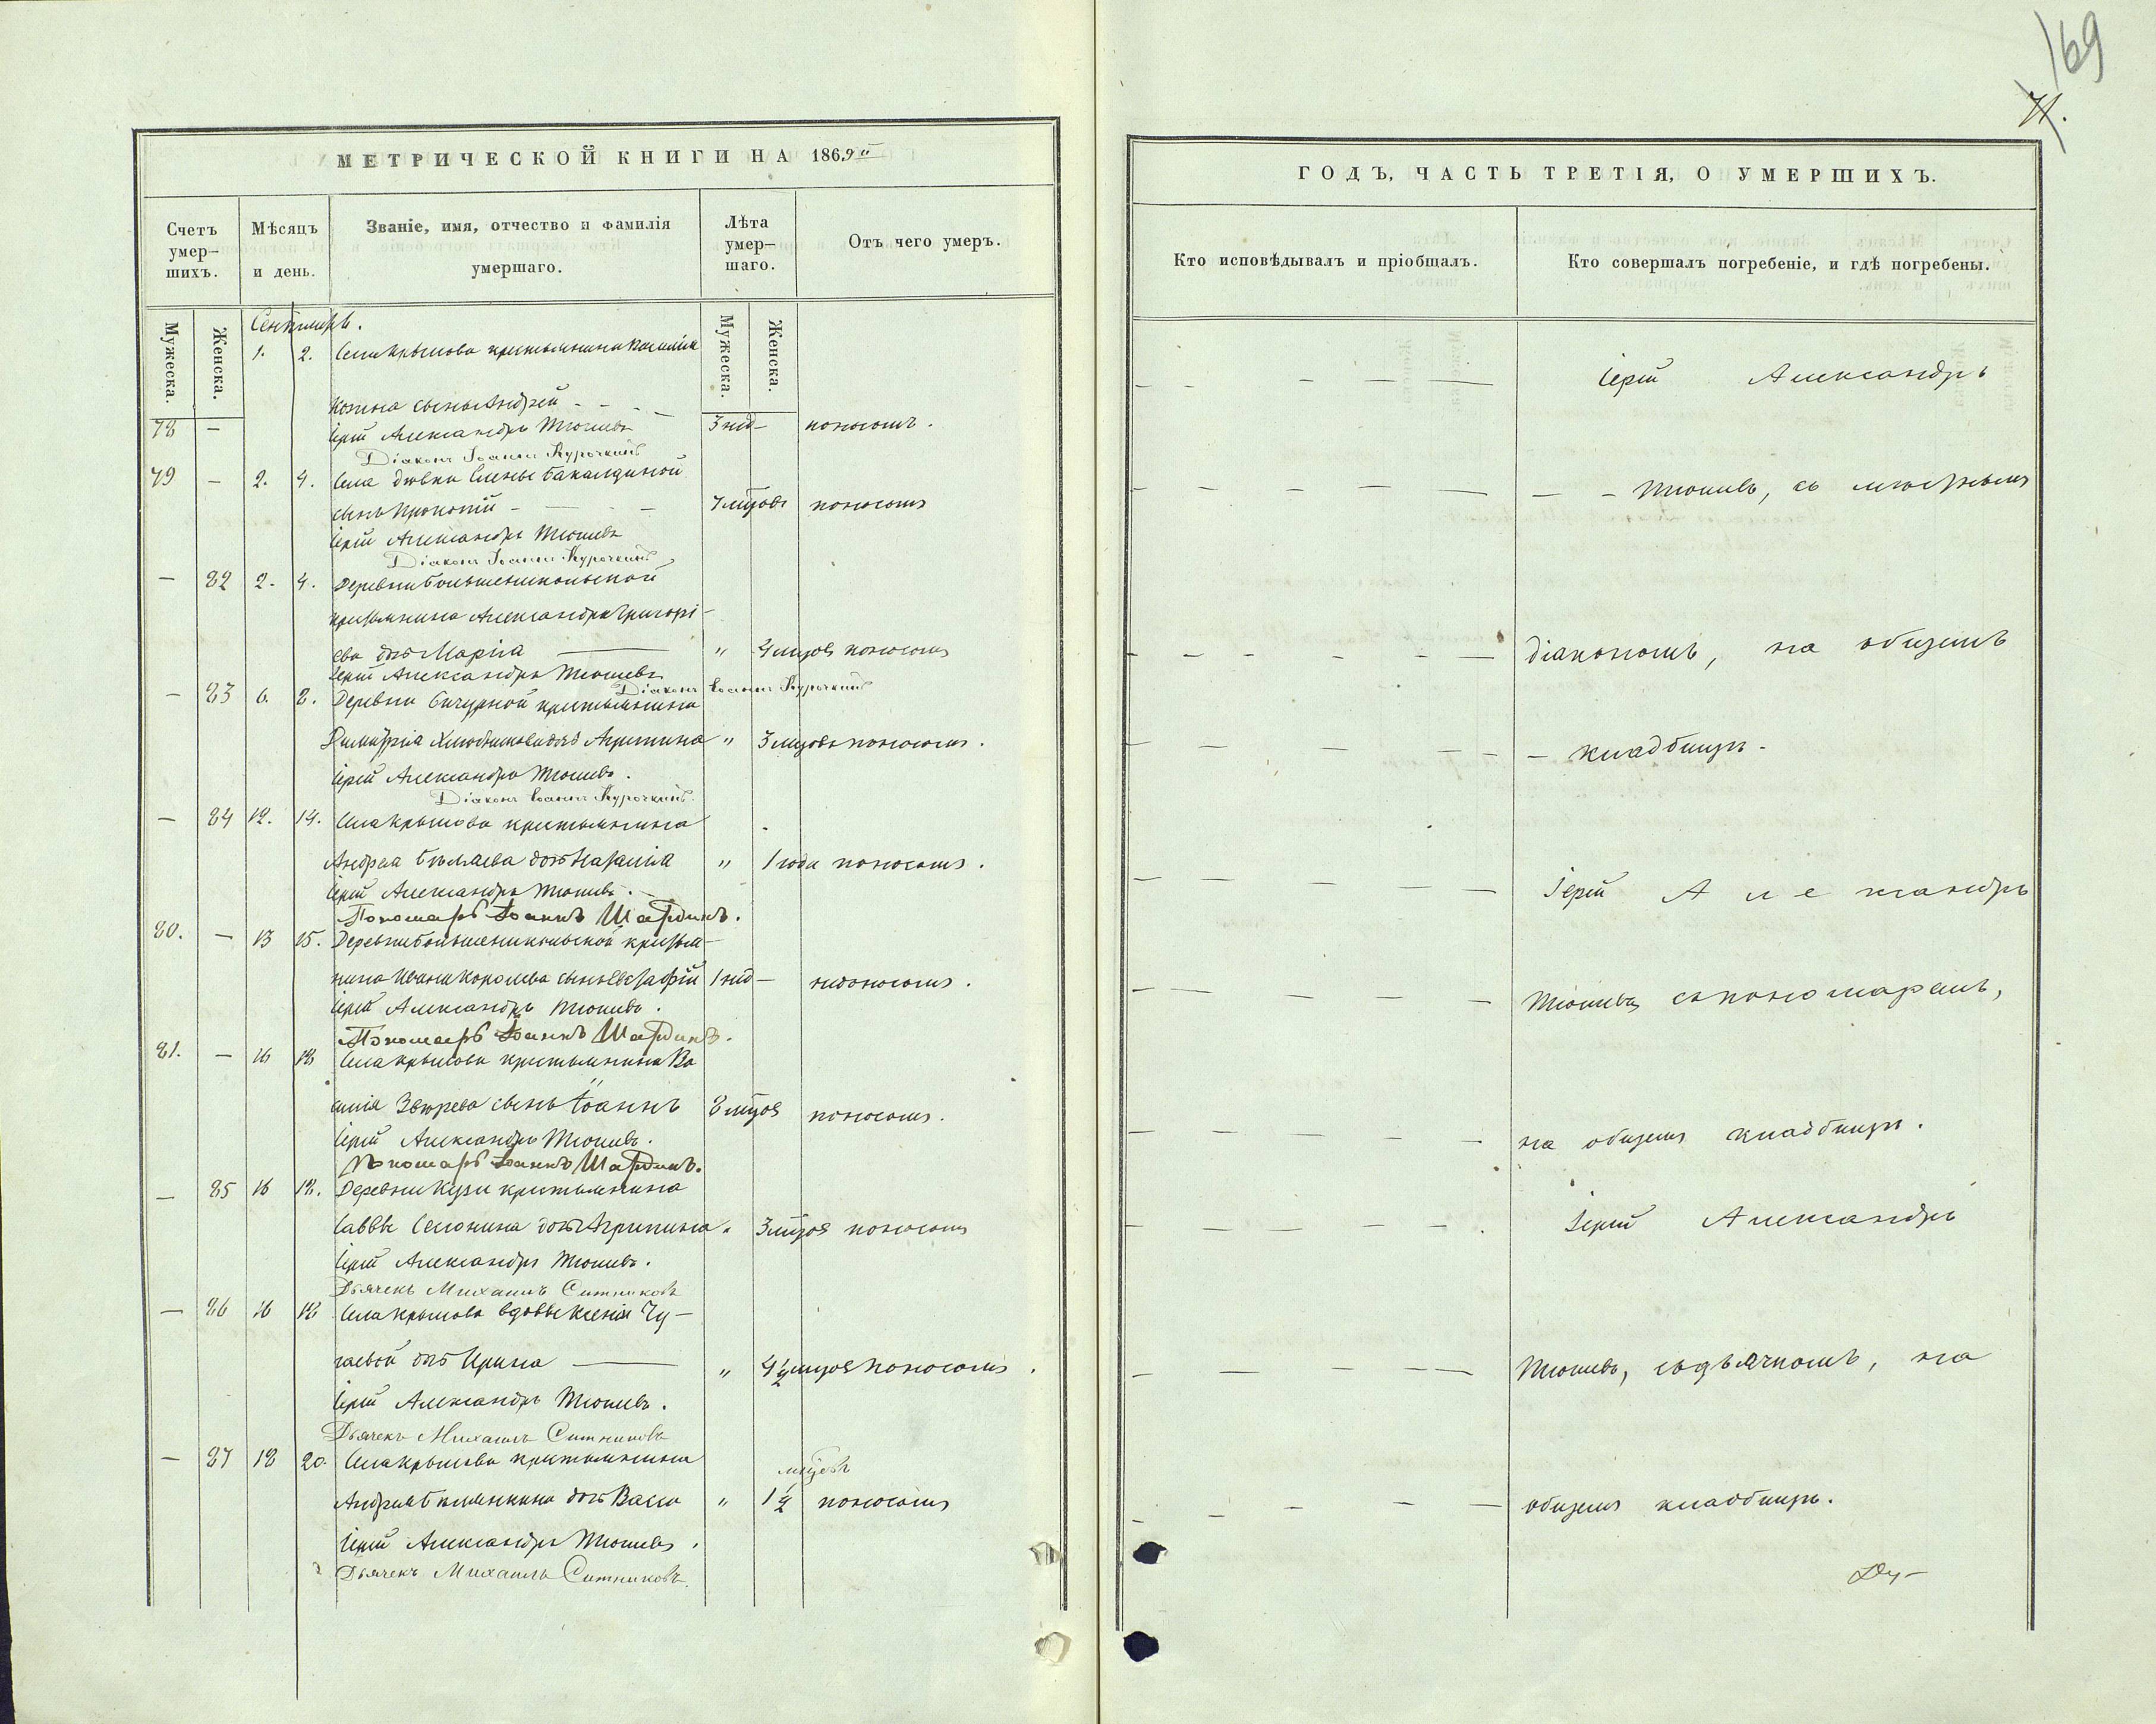 169
71.
МЕТРИЧЕСКОЙ КНИГИ НА 1869й
Счетъ умер-шихъ.
Мѣсяцъ и день.
Званіе, имя, отчество и фамилія умершаго.
Лѣта умер-шаго.
Отъ чего умеръ.
Мужеска.
Женска.
Мужеска.
Женска.
Сентябрь.
1. 2. Села Крылова крестьянина Василія
сынъ Андрей
78 — Іерей Александръ Тюшевъ 3 нед — поносомъ.
Діаконъ Іоаннъ Курочкинъ
79 — 2. 4. Села дѣвки Елены Бакалдиной
сынъ Прокопій — 7 мцовъ поносомъ
Іерей Александръ Тюшевъ
Діаконъ Іоаннъ Курочкинъ
— 82 2. 4. Деревни
крестьянина Александра Григорі-
ева дочь Марія — " 4 мцовъ поносомъ
Іерей Александръ Тюшевъ
Діаконъ Іоаннъ Курочкинъ
— 83 6. 8. Деревни Бичурной крестьянина
Димитрія дочь Агрипина " 3 мцовъ поносомъ.
Іерей Александръ Тюшевъ.
Діаконъ Іоаннъ Курочкинъ.
— 84 12. 14. Села Крылова крестьянина
Андрея Бѣляева дочь " 1 года поносомъ.
Іерей Александръ Тюшевъ.
Пономарь Іоаннъ Шардинъ.
80. — 13 15. Деревни крестья-
нина Ивана Королева сынъ 1 нед —
Іерей Александръ Тюшевъ.
Пономарь Іоаннъ Шардинъ.
81. — 16 18 Села Крылова крестьянина Ва
силія Звѣрева сынъ Іоаннъ 8 мцовъ поносомъ.
Іерей Александръ Тюшевъ.
Пономарь Іоаннъ Шардинъ.
— 85 16 18. Деревни крестьянина
Саввы дочь Агрипина " 3 мцовъ поносомъ
Іерей Александръ Тюшевъ.
Дьячекъ Михаилъ Ситниковъ
— 86 16 18 Села Крылова вдовы Ксеніи Чу-
гаевой дочь Ирина — " 4 1/2 мцовъ поносомъ.
Іерей Александръ Тюшевъ.
Дьячекъ Михаилъ Ситниковъ
— 87 18 20. Села Крылова крестьянина
мцовъ
Андрея дочь Васса " 1 1/2 поносомъ
Іерей Александръ Тюшевъ.
Дьячекъ Михаилъ Ситниковъ.
ГОДЪ, ЧАСТЬ ТРЕТІЯ, О УМЕРШИХЪ.
Кто исповѣдывалъ и пріобщалъ.
Кто совершалъ погребеніе, и гдѣ погребены.
Іерей Александръ
— Тюшевъ, съ
діакономъ, на общемъ
— кладбищѣ.
Іерей Александръ
Тюшевъ съ пономаремъ,
на общемъ кладбищѣ.
Іерей Александръ
Тюшевъ, съ дьячкомъ, на
общемъ кладбищѣ.